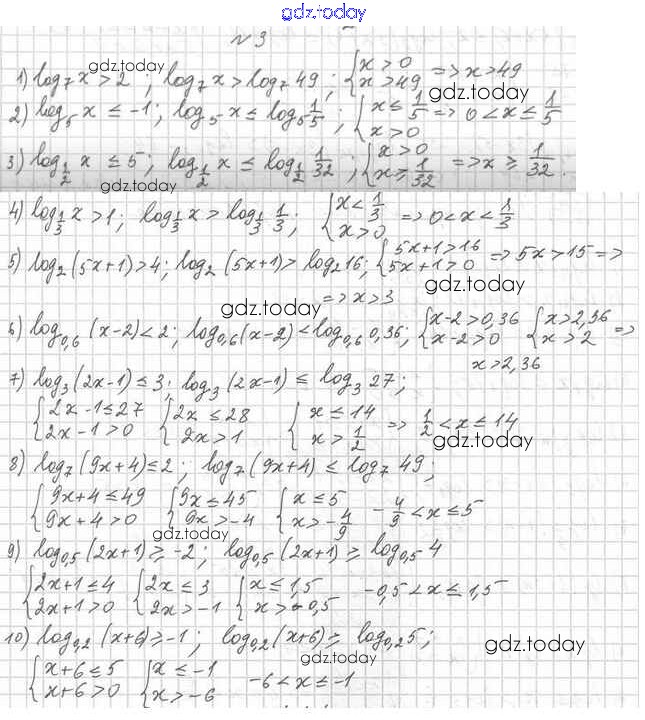 gdz.today
№3
gdz.today
1) log₇x > 2 ; log₇x > log₇49 ; { x > 0 x > 49 => x > 49
gdz.today
2) log₅x ≤ -1; log₅x ≤ log₅ 1/5 ; { x ≤ 1/5 x > 0 => 0 < x ≤ 1/5
3) log_{1/2} x ≤ 5; log_{1/2} x ≤ log_{1/2} 1/32 ; { x > 0 x ≥ 1/32 => x ≥ 1/32.
gdz.today
4) log_{1/3} x > 1; log_{1/3} x > log_{1/3} 1/3 ; { x < 1/3 x > 0 => 0 < x < 1/3
5) log₂(5x+1) > 4; log₂(5x+1) > log₂16; { 5x+1 > 16 5x+1 > 0 => 5x > 15 =>
gdz.today
=> x > 3
gdz.today
6) log_{0,6}(x-2) < 2; log_{0,6}(x-2) < log_{0,6} 0,36; { x-2 > 0,36 x-2 > 0 { x > 2,36 x > 2 =>
x > 2,36
7) log₃(2x-1) ≤ 3; log₃(2x-1) ≤ log₃27;
{ 2x-1 ≤ 27 2x-1 > 0 { 2x ≤ 28 2x > 1 { x ≤ 14 x > 1/2 => 1/2 < x ≤ 14
gdz.today
8) log₇(9x+4) ≤ 2; log₇(9x+4) ≤ log₇49;
{ 9x+4 ≤ 49 9x+4 > 0 { 9x ≤ 45 9x > -4 { x ≤ 5 x > -4/9 -4/9 < x ≤ 5
gdz.today
9) log_{0,5}(2x+1) ≥ -2; log_{0,5}(2x+1) ≥ log_{0,5}4
{ 2x+1 ≤ 4 2x+1 > 0 { 2x ≤ 3 2x > -1 { x ≤ 1,5 x > -0,5 -0,5 < x ≤ 1,5
10) log_{0,2}(x+6) ≥ -1; log_{0,2}(x+6) ≥ log_{0,2}5;
gdz.today
gdz.today
{ x+6 ≤ 5 x+6 > 0 { x ≤ -1 x > -6 -6 < x ≤ -1